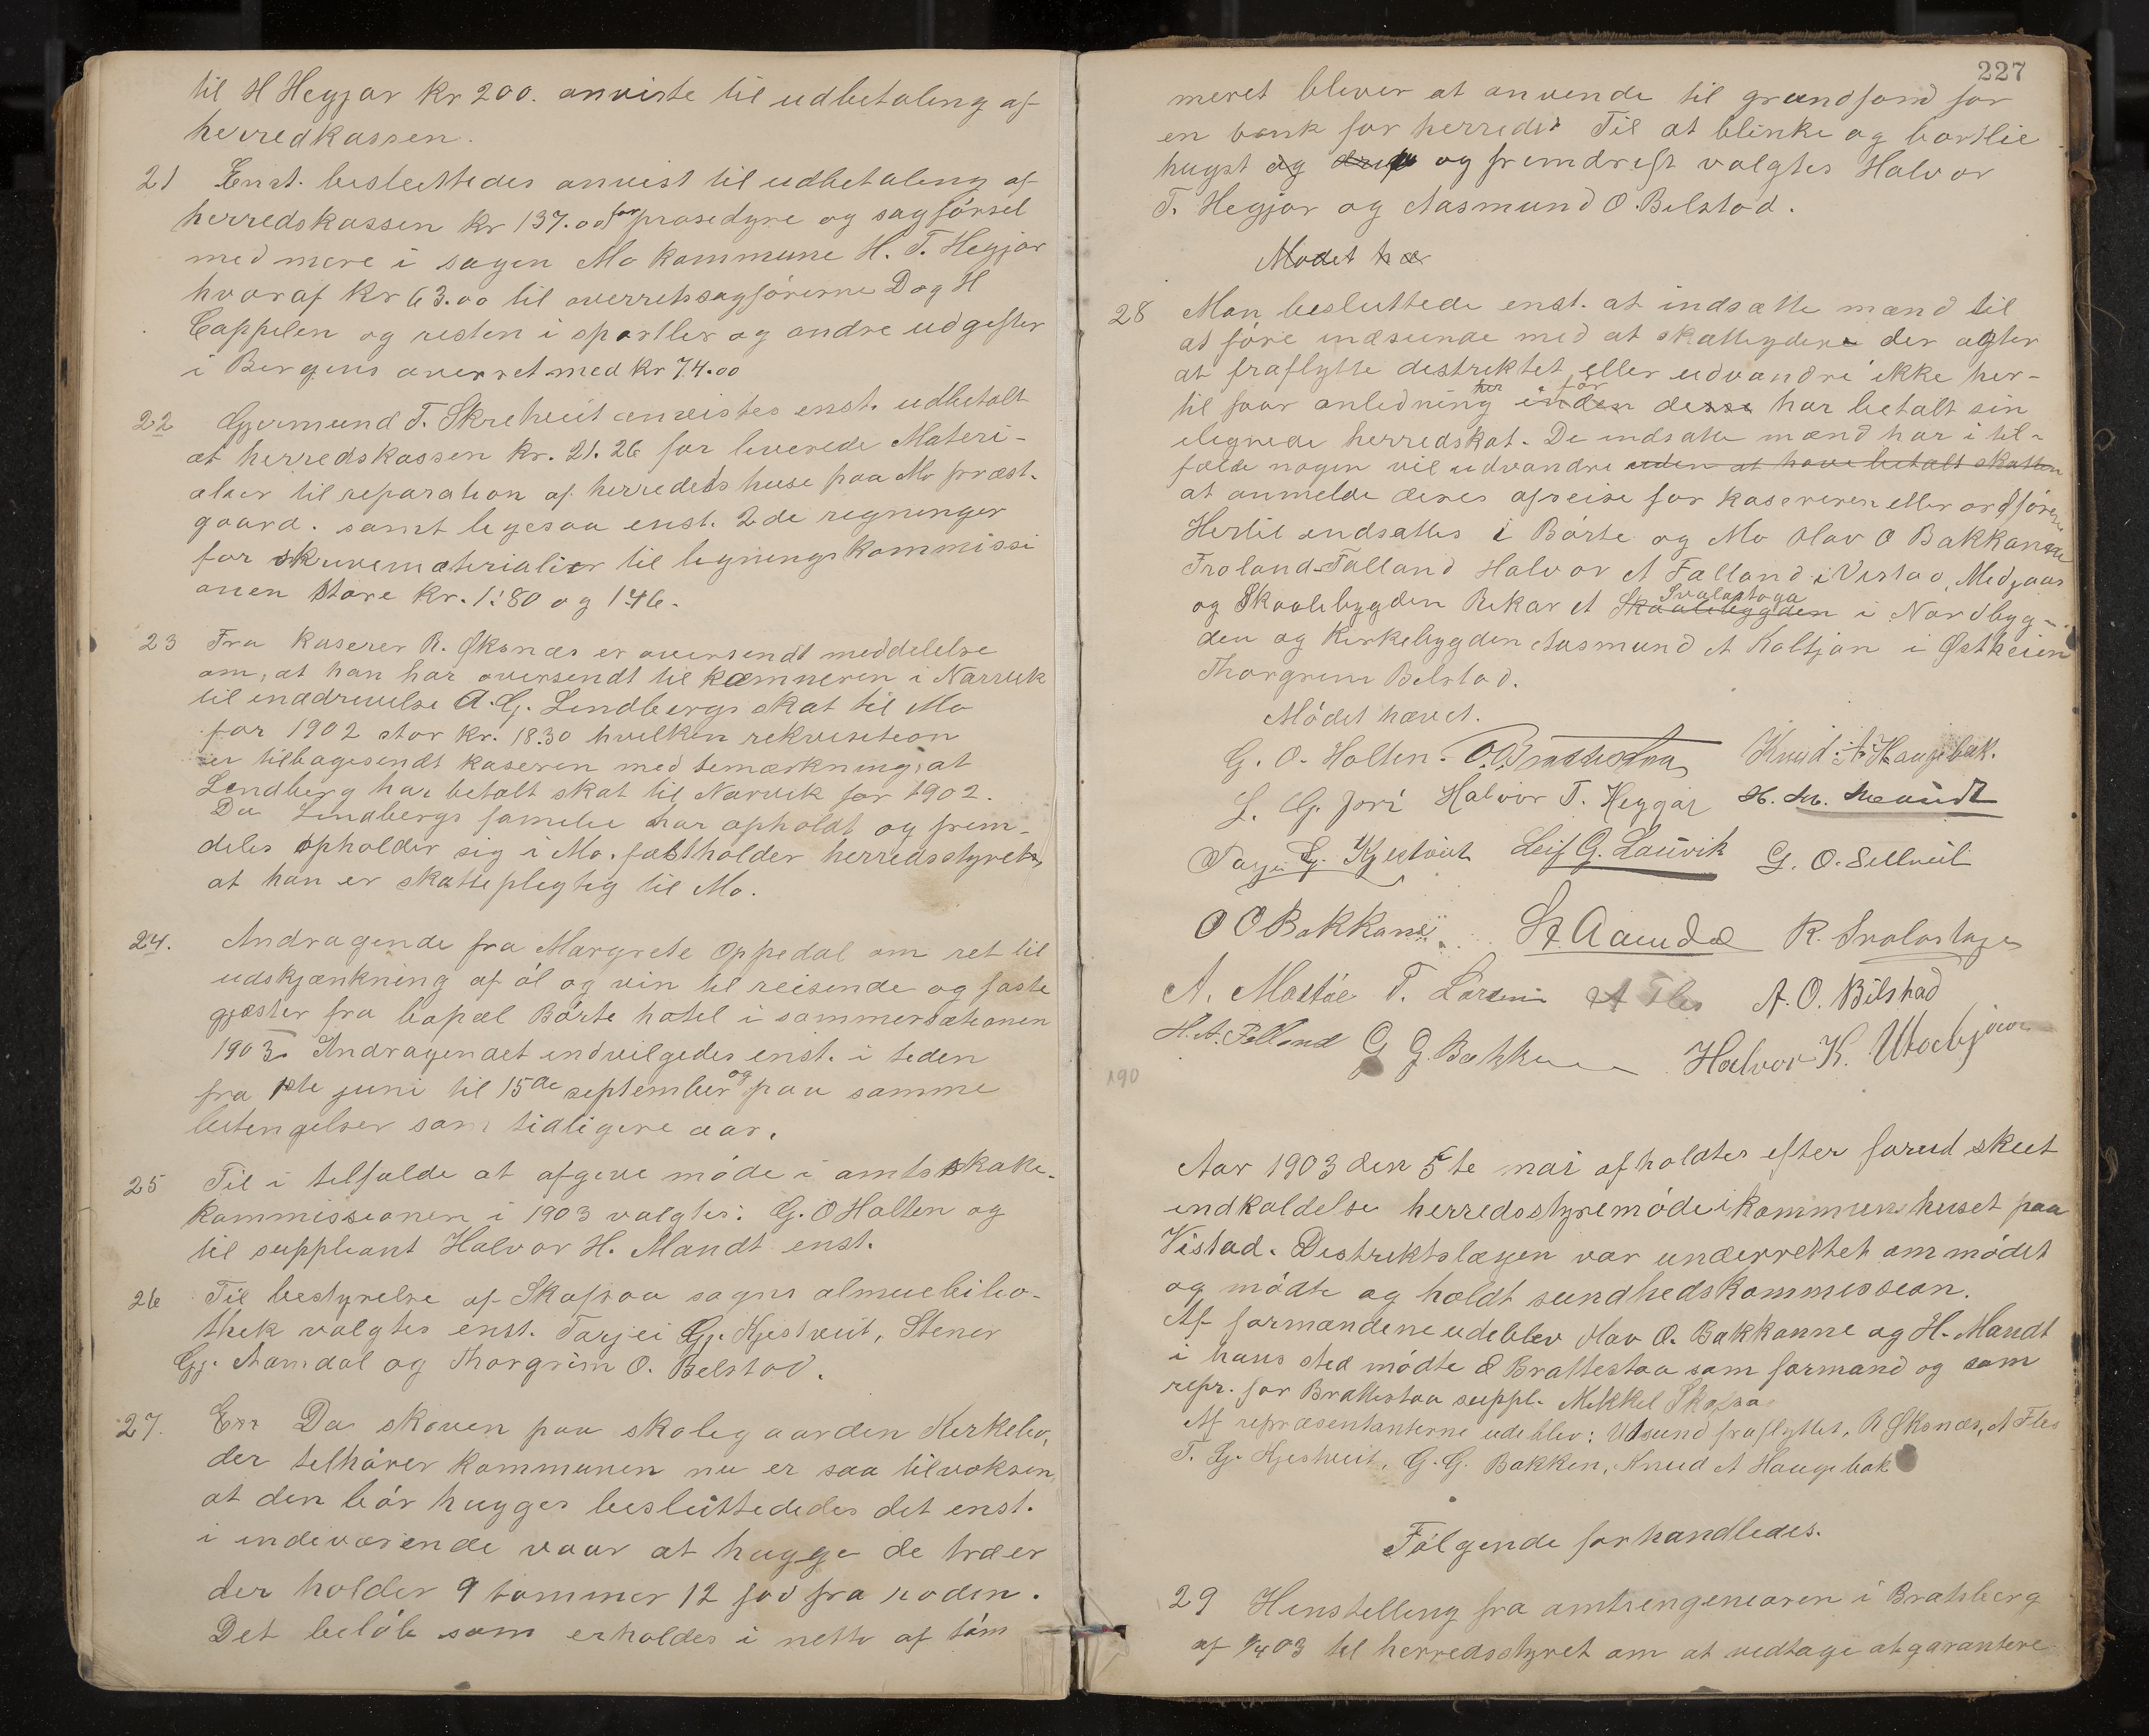 til H Hegjar kr 200. anviste til udbetaling af
herredkassen.
21 Enst. besluttedes anvist til udbetaling af
herredskassen kr 137.00 for prosedyre og sagførsel
med mere i sagen Mo kommune H. T. Hegjar
hvoraf kr 63.00 til overretssagførerne D og H
Cappelen og resten i sportler og andre udgifter
i Bergens overret med kr 74.00
22 Gjermund T. Skrehveit anvistes enst. udbetalt
at herredskassen kr. 21.26 for leverede Materi-
alier til reparation af herredets huse paa Mo præst-
gaard. samt ligesaa enst. 2de regninger
for skrivematerialier til ligningskommissi
onen store kr. 1.80 og 1.46.
23 Fra kaserer R. Øksnæs er oversendt meddelelse
om, at han har oversendt til kæmneren i Narvik
til inddrivelse A. G. Lindbergs skat til Mo
for 1902 stor kr. 18.30 hvilken rekvisition
er tilbagesendt kaseren med bemærkning, at
Lindberg har betalt skat til Narvik for 1902.
Da Lindbergs familie har opholdt og frem-
deles opholder sig i Mo. fastholder herredsstyret
at han er skattepligtig til Mo.
24. Andragende fra Margrete Oppedal om ret til
udskjænkning af øl og vin til reisende og faste
gjæster fra Børte hotel i sommersæsonen
1903. Andragendet indvilgedes enst. i tiden
fra 1ste juni til 15de september og paa samme
betingelser som tidligere aar.
25 Til i tilfælde at afgive møde i amtsskatte-
kommissionen i 1903 valgtes: G. O Holten og
til suppleant Halvor H. Mandt enst.
26 Til bestyrelse af Skafsaa sogns almuebibio-
thek valgtes enst. Tarjei Gj. Kjestveit, Stener
Gj. Aamdal og Thorgrim O. Belstad.
27. Da skoven paa skolegaarden Kirkebø,
der tilhører kommunen nu er saa tilvoksen,
at den bør hugges besluttededes det enst.
i indeværende vaar at hugge de træer
der holder 9 tommer 12 fod fra roden.
Det beløb som erholdes i netto af tøm
227
meret bliver at anvende til grundfond for
en bank for herredet Til at blinke og bortlie
hugst og og fremdrift valgtes Halvor
T. Hegjar og Aasmund O. Belstad.
Mødet hæ
28 Man besluttede enst. at indsætte mænd til
at føre indseende med at skatteydere der agter
at fraflytte destriktet eller udvandre ikke her-
til faar anledning før inden desse har betalt sin
ilignede herredskat. De indsatte mænd har i til-
fælde nogen vil udvandre uden at have betalt skatten
at anmelde deres afreise for kasereren eller ordføreren
Hertil indsattes i Børte og Mo Olav O Bakkane
Froland Falland Halvor A Falland i Vistad, Midgaar
og Skaalibygden Rikar A Skaalibygden Svalastoga i Nordbyg-
den og Kirkebygden Aasmund A Koltjøn i Østheien
Thorgrim Belstad.
Mødet hævet.
G. O. Holten. O. Brattestaa Knud A. Haugebak.
L. G. Jori Halvor T. Heggar H. H. Mandt
Tarjei G. Kjestveit Leif G. Lauvik G. O. Sellveit
O O Bakkane St. Aamdal R. Svalastoga
A. Mostøl T. Larsen A Fles A. O. Bilstad
H. A. Felland G G. Bakken Halvor K. Utaabjøen
190
Aar 1903 den 5te mai afholdtes efter forud skeet
indkaldelse herredsstyremøde i kommunehuset paa
Vistad. Distriktslægen var underrettet om mødet
og mødte og holdt sundhedskommission.
Af formændene udeblev Olav O. Bakkanne og H. Mandt
i hans sted mødte O Brattestaa som formand og som
repr. for Brattestaa suppl. Mikkel Skafsaa
Af repræsentanterne udeblev: Utsund fraflyttet, R Øksnæs, A Fles
T. G. Kjestveit, G. G. Bakken, Knud A Haugebak
Følgende forhandledes.
29 Henstilling fra amtsingeniøren i Bratsberg
af 1/4 03 til herredsstyret om at vedtage at garantere